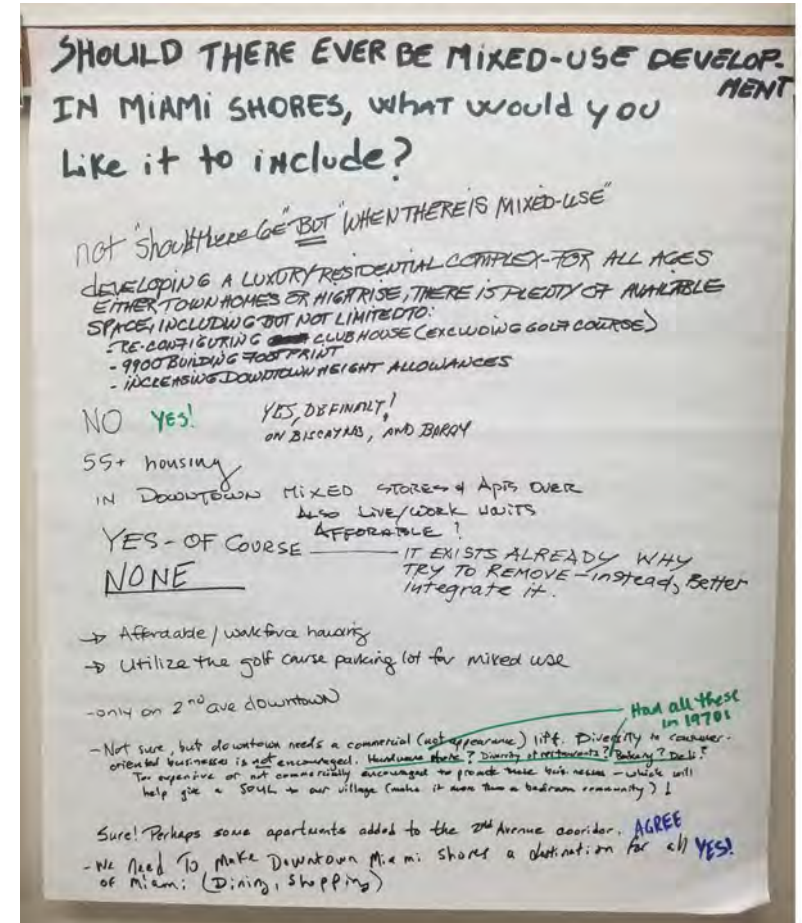 SHOULD THERE EVER BE MIXED-USE DEVELOP-
MENT
IN MIAMI SHORES, WHAT would you
Like it to include?
not "should there be" BUT "WHEN THERE IS MIXED-USE"
dEVELOPING A LUXURY RESIDENTIAL COMPLEX-FOR ALL AGES
EITHER TOWN HOMES OR HIGHRISE, THERE IS PLENTY OF AVAILABLE
SPACE, INCLUDING BUT NOT LIMITED TO:
-RE-CONFIGURING CLUBHOUSE (EXCLUDING GOLF COURSE)
- 9900 BUILDING FOOTPRINT
- INCREASING DOWNTOWN HEIGHT ALLOWANCES
NO YES! YES, DEFINATLY!
ON BISCAYNE, AND BARRY
55+ housing
IN DOWNTOWN MIXED STORES & APTS OVER
ALSO LIVE/WORK UNITS
AFFORABLE!
YES-OF COURSE — IT EXISTS ALREADY WHY
TRY TO REMOVE-instead, Better
integrate it.
NONE
→ Affordable/workforce housing
→ Utilize the golf course parking lot for mixed use
-only on 2nd ave downtown
Had all these
in 1970s
- Not sure, but downtown needs a commercial (not appearance) lift. Diversity to consumer-
oriented businesses is not encouraged. Hardware store? Diversity of restaurants? Bakery? Deli?
Too expensive or not commercially encouraged to promote these businesses - which will
help give a SOUL to our village (make it more than a bedroom community)!
Sure! Perhaps some apartments added to the 2nd Avenue cooridor. AGREE
- We Need To Make Downtown Miami Shores a destination for all YES!
of Miami (Dining, Shopping)